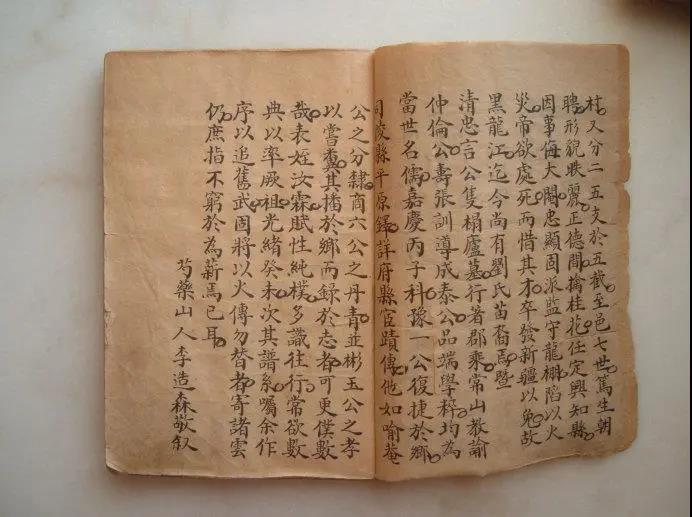 村又分二五支於五截至邑七世馬生朝
聘形貌昳麗正德間擒桂花任定興知縣
因事侮大閹忠顯固派監守龍棚陷以火
災帝欲處死而惜其才卒發新疆以免故
黑龍江迄今尚有劉氏苗裔焉暨
清忠言公隻榻廬墓行著郡乘常山教諭
仲倫公壽張訓導成泰公品端學粹均為
當世名儒嘉慶丙子科豫一公復捷於鄉
司陵縣平原鐸詳府縣宦蹟傳他如喻菴
公之分隸商六公之丹青並彬玉公之孝
以嘗糞其播於鄉而録於志者都可更僕數
哉表姪汝霖賦性純樸多識往行常欲數
典以率厥祖光緒癸未次其譜系囑余作
序以追舊武固將以火傳勿替者寄諸雲
仍庶指不窮於為薪焉已耳
芍藥山人李造森敬叙